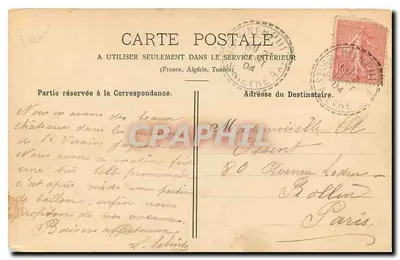 CARTE POSTALE
A UTILISER SEULEMENT DANS LE SERVICE INTÉRIEUR
(France, Algérie, Tunisie)
Partie réservée à la Correspondance.
Adresse du Destinataire.
Nous avons des beaux
châteaux dans les
de St Verain
Nous avons ce matin fait
une très belle promenade
c'est après midi une partie
de ballon, enfin nous
profitons de nos
Baisers affectueux
Mademoiselle A
80 Avenue Ledru-
Rollin
Paris
CPAPHIL
04
NIÈVRE